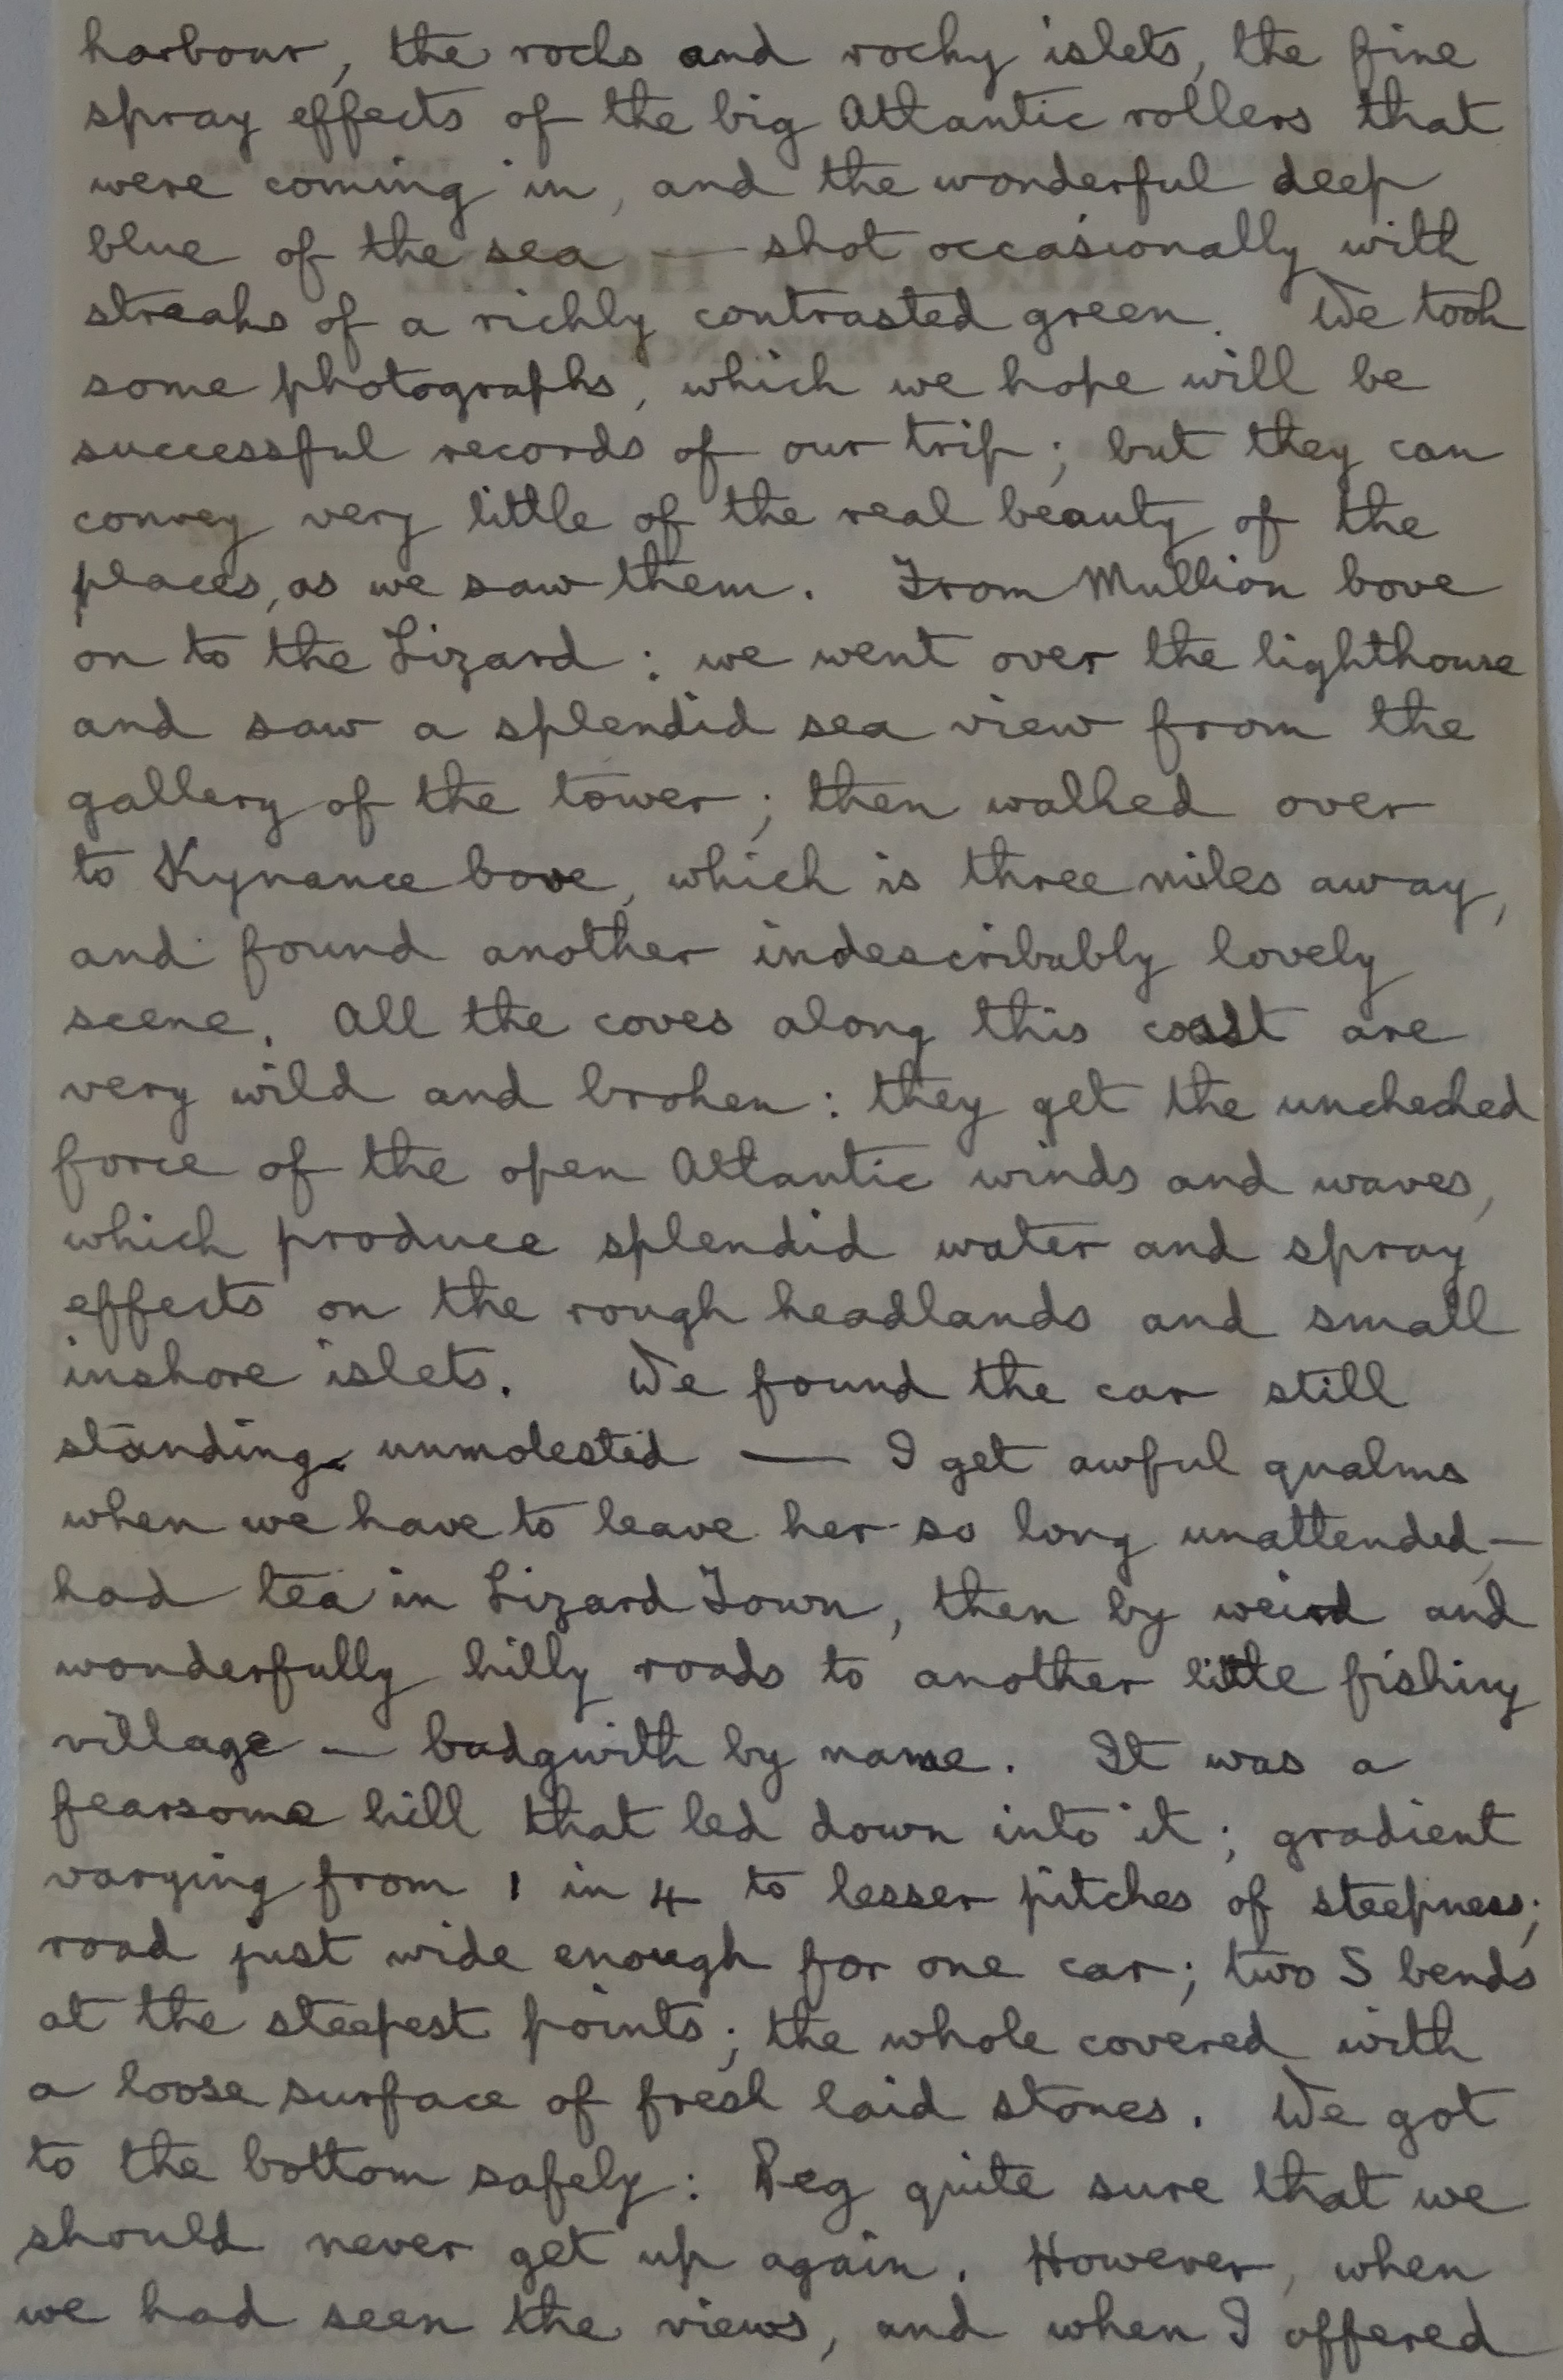 harbour, the rocks and rocky islets, the fine
spray effects of the big Atlantic rollers that
were coming in, and the wonderful deep
blue of the sea — shot occasionally with
streaks of a richly contrasted green. We took
some photographs, which we hope will be
successful records of our trip; but they can
convey very little of the real beauty of the
places, as we saw them. From Mullion Cove
on to the Lizard: we went over the lighthouse
and saw a splendid sea view from the
gallery of the tower; then walked over
to Kynance Cove, which is three miles away,
and found another indescribably lovely
scene. All the coves along this coast are
very wild and broken: they get the unchecked
force of the open Atlantic winds and waves,
which produce splendid water and spray
effects on the rough headlands and small
inshore islets. We found the car still
standing unmolested — I get awful qualms
when we have to leave her so long unattended, —
had tea in Lizard Town, then by weird and
wonderfully hilly roads to another little fishing
village — Cadgwith by name. It was a
fearsome hill that led down into it; gradient
varying from 1 in 4 to lesser pitches of steepness;
road just wide enough for one car; two S bends
at the steepest points; the whole covered with
a loose surface of fresh laid stones. We got
to the bottom safely: Peg quite sure that we
should never get up again. However, when
we had seen the views, and when I offered